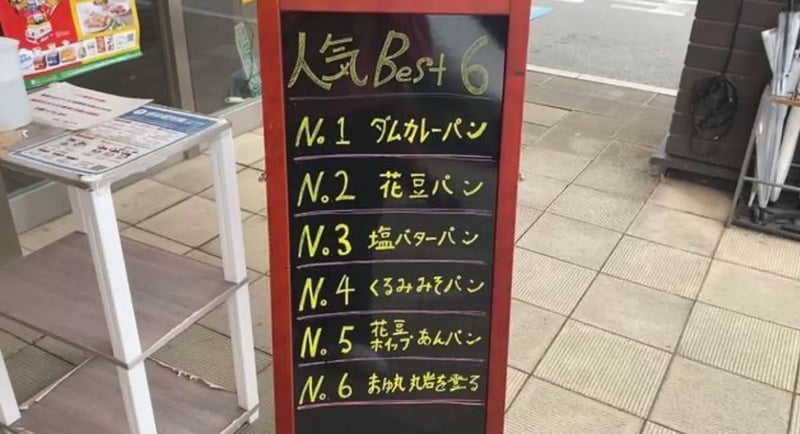 人気 Best 6
No.1 ダムカレーパン
No.2 花豆パン
No.3 塩バターパン
No.4 くるみみそパン
No.5 花豆ホイップあんパン
No.6 おゆ丸 丸岩を登る